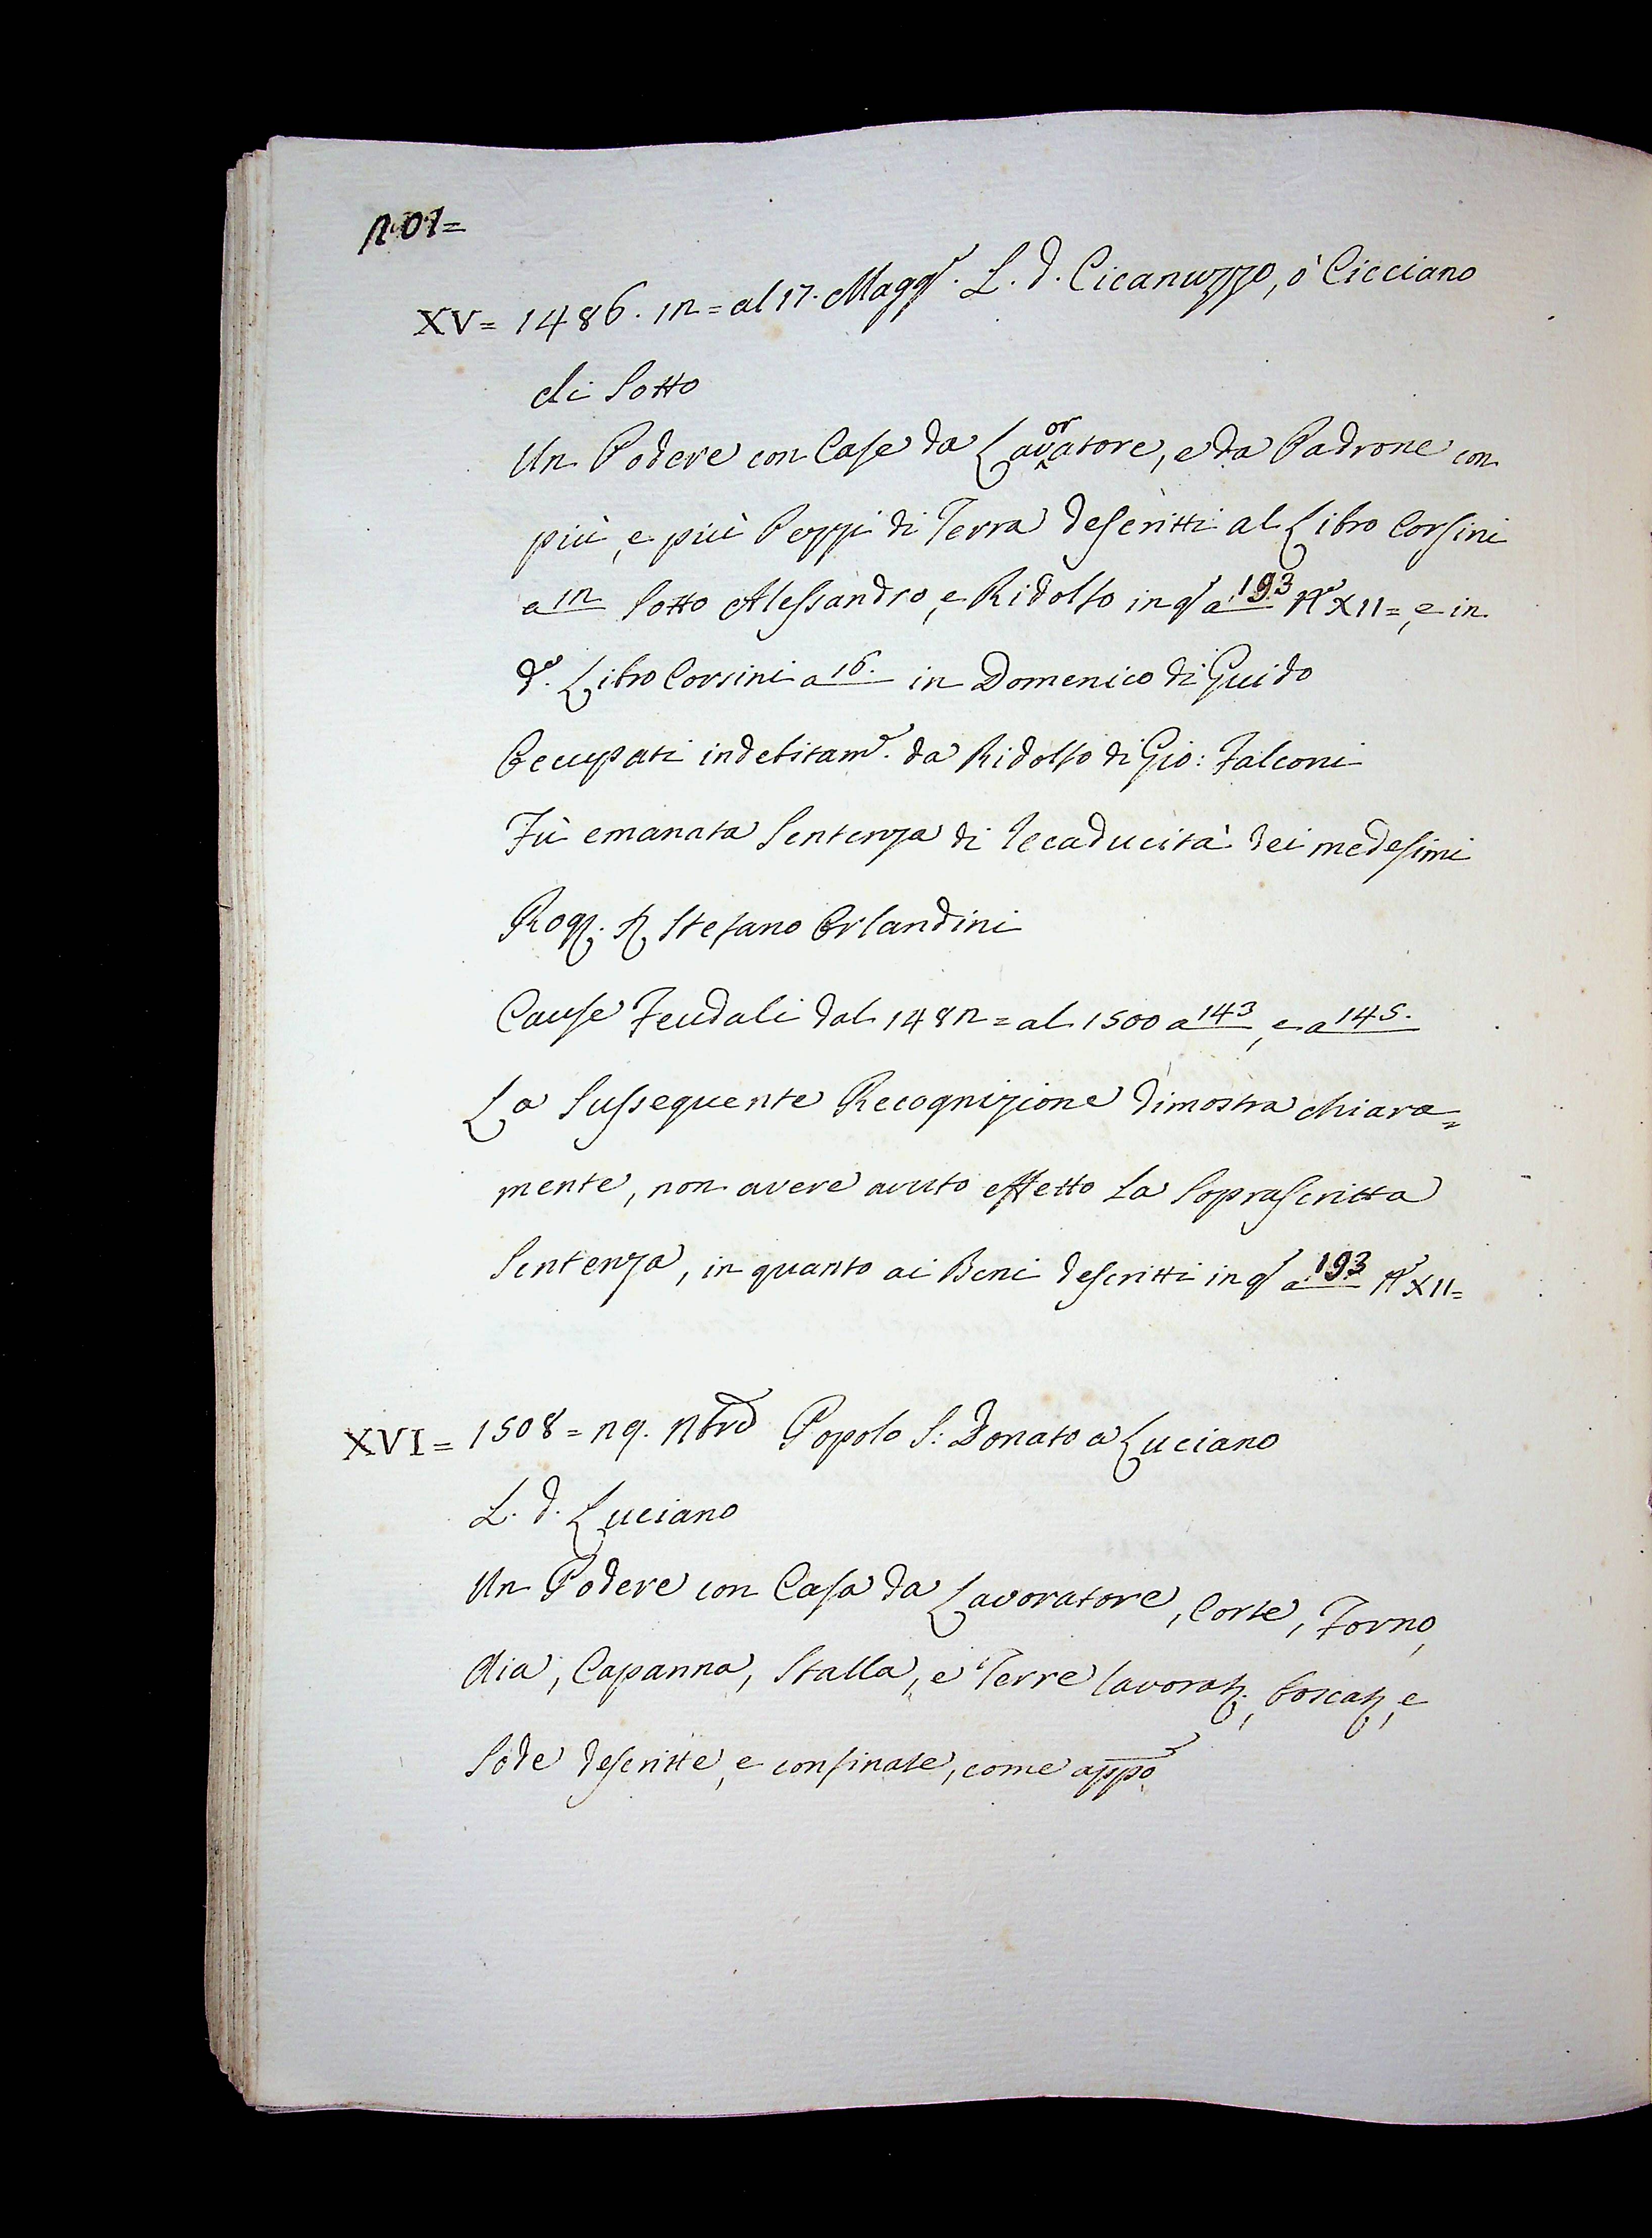 201=
XV= 1486. 12= al 17. Magg.º L. d. Cicanuzzo, ò Cicciano
di Sotto
Un Podere con Case da Lavoratore, e da Padrone con
più, e più Pezzi di Terra descritti al Libro Corsini
a 12 Sotto Alessandro, e Ridolfo in q.º a 193 Nº XII=, e in
d.º Libro Corsini a 16. in Domenico di Guido
Occupati indebitam.e da Ridolfo di Gio: Falconi
Fù emanata Sentenza di Recaducità dei medesimi
Rog. p Stefano Orlandini
Cause Feudali dal 1482= al 1500 a 143, e a 145.
La Sussequente Recognizione dimostra chiara=
mente, non avere avuto effetto la Soprascritta
Sentenza, in quanto ai Beni descritti in q.º a 193 Nº XII=
XVI= 1508= 29. Nbre Popolo S: Donato a Luciano
L. d. Luciano
Un Podere con Casa da Lavoratore, Corte, Forno,
Aia, Capanna, Stalla, e Terre lavorat:, boscat:, e
Sode descritte, e confinate, come appo